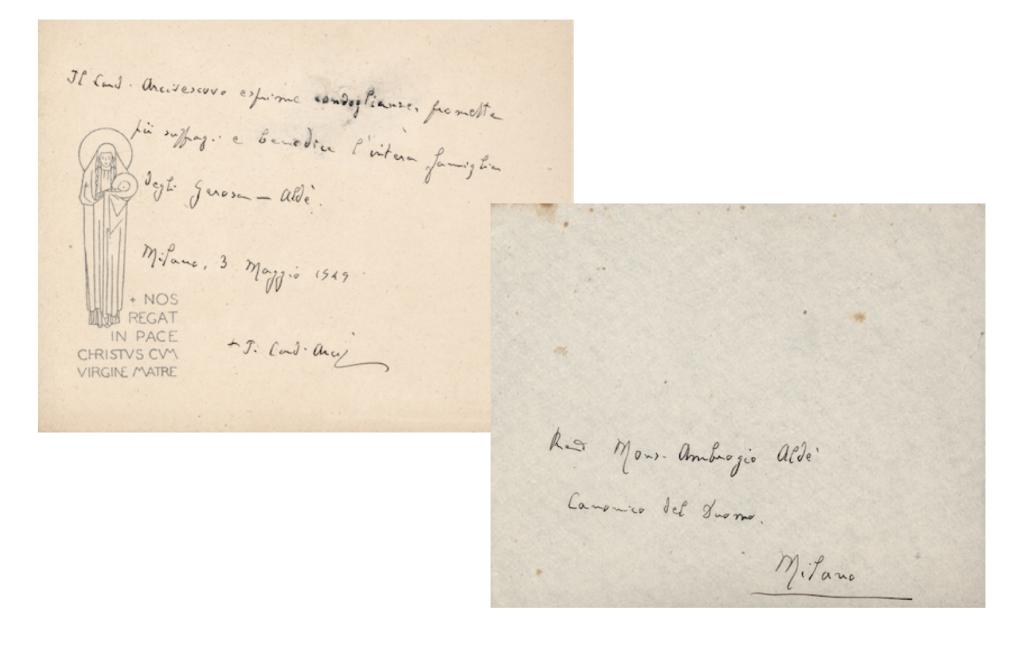 Il Card. Arcivescovo esprime condoglianze, promette
più suffragi e benedice l'intera famiglia
degli Gerosa - Aldè.
Milano, 3 Maggio 1929
+ NOS
REGAT
IN PACE
CHRISTVS CVM
VIRGINE MATRE
+ I. Card. Arciv
Rev Mons. Ambrogio Aldè
Canonico del Duomo.
Milano